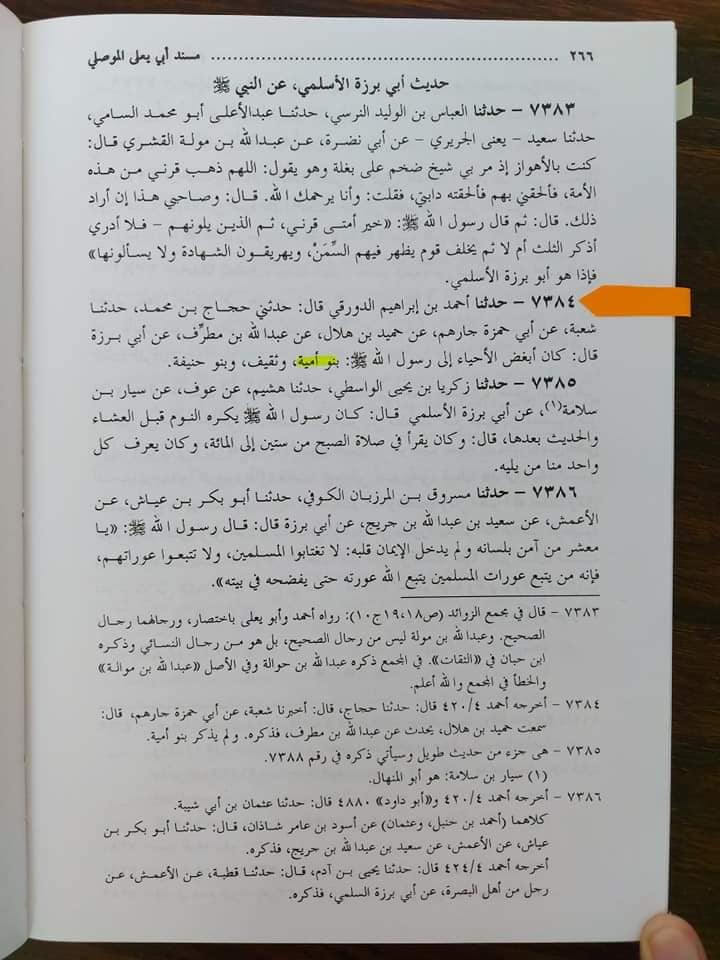 ٢٦٦ ........................................................ مسند أبي يعلى الموصلي
حديث أبي برزة الأسلمي، عن النبي ﷺ
٧٣٨٣ - حدثنا العباس بن الوليد النرسي، حدثنا عبدالأعلى أبو محمد السامي،
حدثنا سعيد - يعنى الجريري - عن أبي نضرة، عن عبدالله بن مولة القشري قال:
كنت بالأهواز إذ مر بي شيخ ضخم على بغلة وهو يقول: اللهم ذهب قرني من هذه
الأمة، فألحقني بهم فألحقته دابتي، فقلت: وأنا يرحمك الله. قال: وصاحبي هذا إن أراد
ذلك. قال: ثم قال رسول الله ﷺ: «خير أمتى قرني، ثم الذين يلونهم - فلا أدري
أذكر الثلث أم لا ثم يخلف قوم يظهر فيهم السِّمَنْ، ويهريقون الشهادة ولا يسألونها»
فإذا هو أبو برزة الأسلمي.
٧٣٨٤ - حدثنا أحمد بن إبراهيم الدورقي قال: حدثني حجاج بن محمد، حدثنا
شعبة، عن أبي حمزة جارهم، عن حميد بن هلال، عن عبدالله بن مطرِّف، عن أبي برزة
قال: كان أبغض الأحياء إلى رسول الله ﷺ: بنو أمية، وثقيف، وبنو حنيفة.
٧٣٨٥ - حدثنا زكريا بن يحيى الواسطي، حدثنا هشيم، عن عوف، عن سيار بن
سلامة(١)، عن أبي برزة الأسلمي قال: كان رسول الله ﷺ يكره النوم قبل العشاء
والحديث بعدها، قال: وكان يقرأ في صلاة الصبح من ستين إلى المائة، وكان يعرف كل
واحد منا من يليه.
٧٣٨٦ - حدثنا مسروق بن المرزبان الكوفي، حدثنا أبو بكر بن عياش، عن
الأعمش، عن سعيد بن عبدالله بن جريج، عن أبي برزة قال: قال رسول الله ﷺ: «يا
معشر من آمن بلسانه ولم يدخل الإيمان قلبه: لا تغتابوا المسلمين، ولا تتبعوا عوراتهم،
فإنه من يتبع عورات المسلمين يتبع الله عورته حتى يفضحه في بيته».
٧٣٨٣ - قال في مجمع الزوائد (ص١٨،١٩ج١٠): رواه أحمد وأبو يعلى باختصار، ورجالهما رجال
الصحيح. وعبدالله بن مولة ليس من رجال الصحيح، بل هو من رجال النسائي وذكره
ابن حبان في «الثقات». في المجمع ذكره عبدالله بن حوالة وفي الأصل «عبدالله بن موالة»
والخطأ في المجمع والله أعلم.
٧٣٨٤ - أخرجه أحمد ٤٢٠/٤ قال: حدثنا حجاج، قال: أخبرنا شعبة، عن أبي حمزة جارهم، قال:
سمعت حميد بن هلال، يحدث عن عبدالله بن مطرف، فذكره. ولم يذكر بنو أمية.
٧٣٨٥ - هى جزء من حديث طويل وسيأتي ذكره في رقم ٧٣٨٨.
(١) سيار بن سلامة: هو أبو المنهال.
٧٣٨٦ - أخرجه أحمد ٤٢٠/٤ و«أبو داود» ٤٨٨٠ قال: حدثنا عثمان بن أبي شيبة.
كلاهما (أحمد بن حنبل، وعثمان) عن أسود بن عامر شاذان، قال: حدثنا أبو بكر بن
عياش، عن الأعمش، عن سعيد بن عبدالله بن جريج، فذكره.
أخرجه أحمد ٤٢٤/٤ قال: حدثنا يحيى بن آدم، قال: حدثنا قطبة، عن الأعمش، عن
رجل من أهل البصرة، عن أبي برزة السلمي، فذكره.